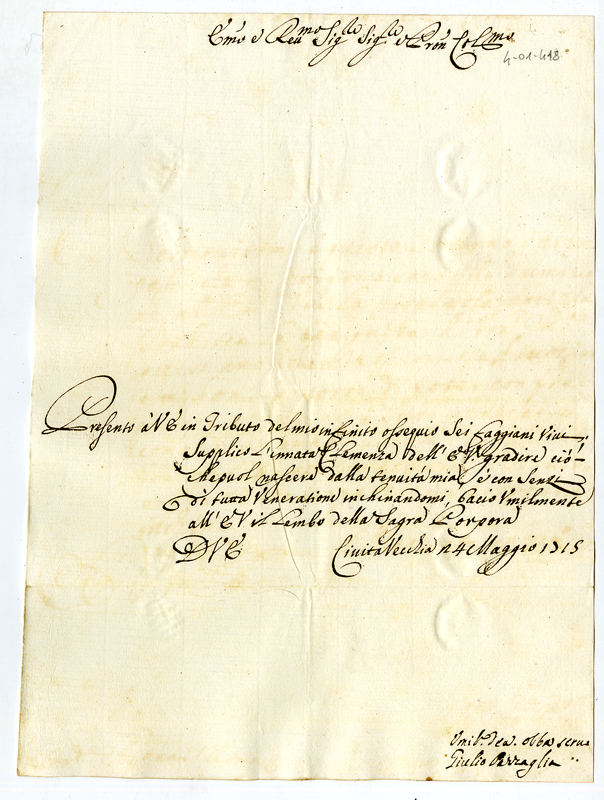 Emo e Reumo Sigre Sigre e Pron Colmo
4-01-418
Presento à VE in Tributo del mio infinito ossequio sei Faggiani vivi,
supplico l'innata Clemenza dell' EV gradire ciò
che puol nascere dalla tenuità mia, e con sensi
di tutta Veneratione inchinandomi, bacio Umilmente
all' EV il Lembo della Sagra Porpora
DVE Civita Vecchia 24 Maggio 1715
Umil. deu. obbo seruo
Giulio Pazzaglia